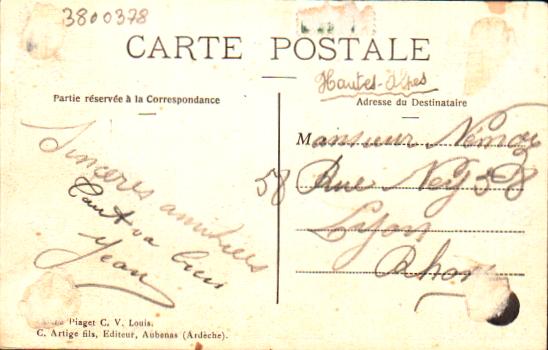 3800378
CARTE POSTALE
Hautes-Alpes
Partie réservée à la Correspondance
Adresse du Destinataire
Sinceres amitiés
Tout va bien
Jean
Monsieur
58 Rue Ney 58
Lyon
Rhone
Piaget C. V. Louis.
C. Artige fils, Editeur, Aubenas (Ardèche).